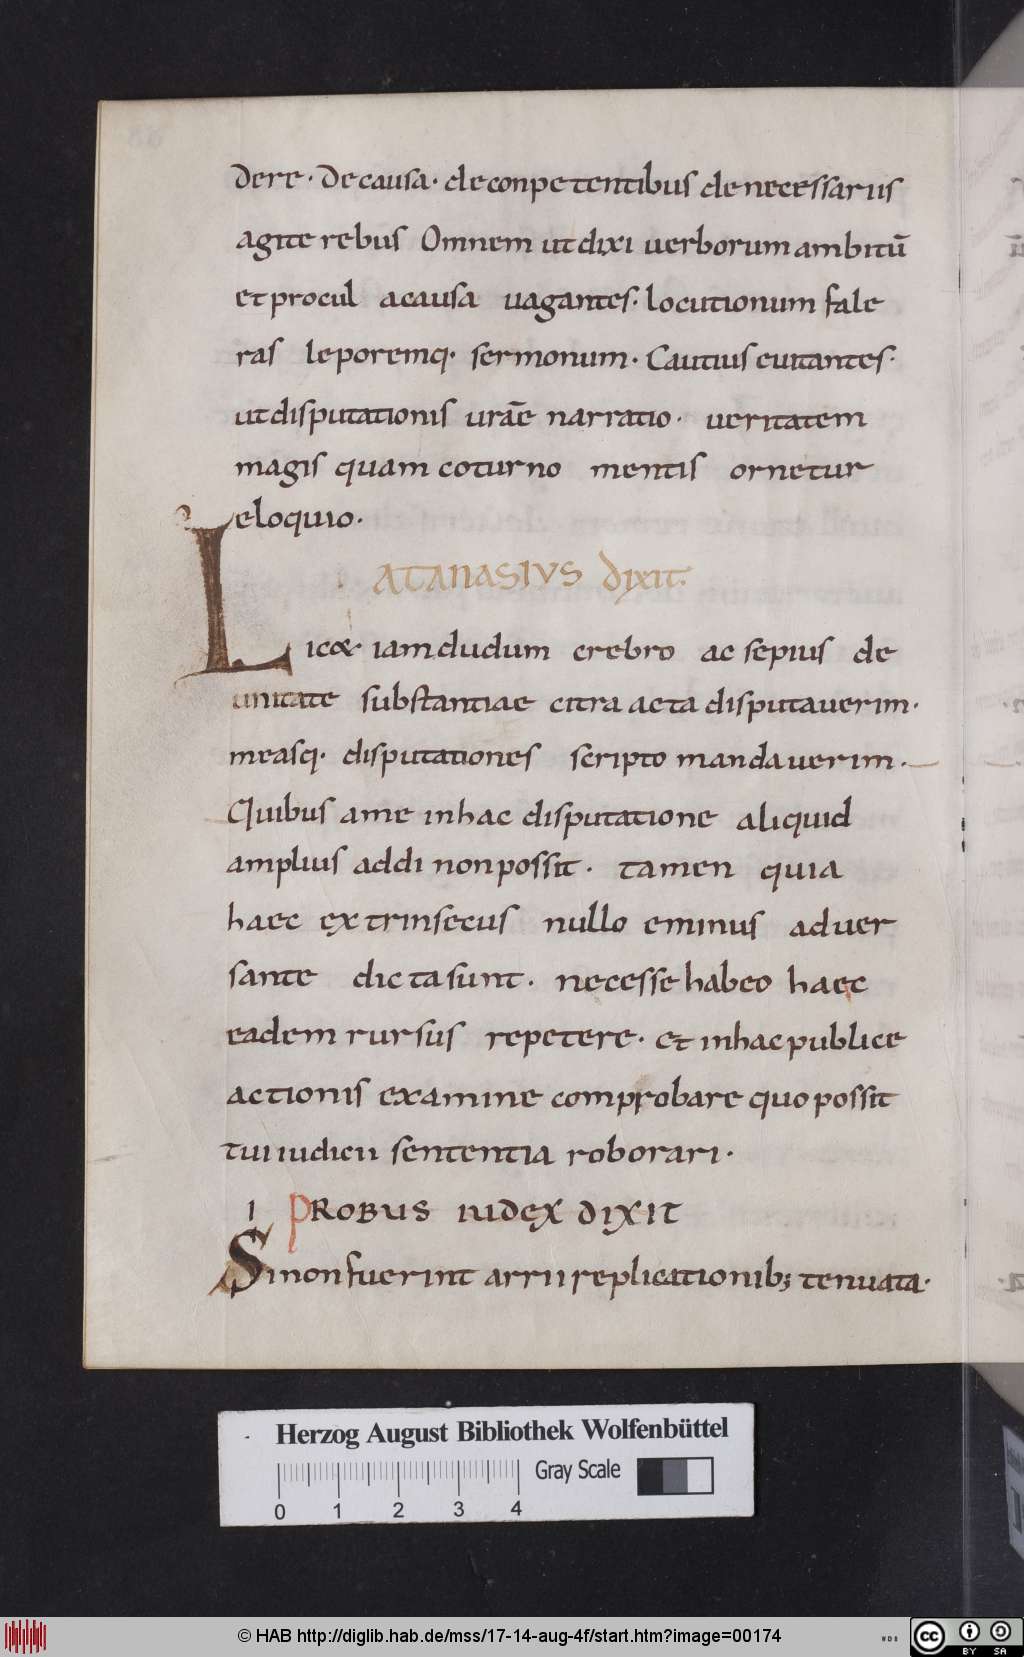 dere · De causa · de conpetentibus de necessariis
agite rebus Omnem ut dixi uerborum ambitū
et procul a causa uagantes · locutionum fale
ras leporemq· sermonum · Cautius euitantes ·
ut disputationis urāe narratio · ueritatem
magis quam coturno mentis ornetur
eloquio ·
ATANASIVS dixit ·
Lic& iam dudum crebro ac sepius de
unitate substantiae citra acta disputauerim ·
measq· disputationes scripto mandauerim ·
Quibus a me in hac disputatione aliquid
amplius addi non possit · tamen quia
haec extrinsecus nullo eminus aduer
sante dicta sunt · necesse habeo haec
eadem rursus repetere · et in hac publice
actionis examine comprobare quo possit
tui iudicii sententia roborari ·
I PROBUS IUDEX DIXIT
Si non fuerint arrii replicationib; tenuata ·
Herzog August Bibliothek Wolfenbüttel
Gray Scale
0 1 2 3 4
© HAB http://diglib.hab.de/mss/17-14-aug-4f/start.htm?image=00174
WDB
cc BY SA